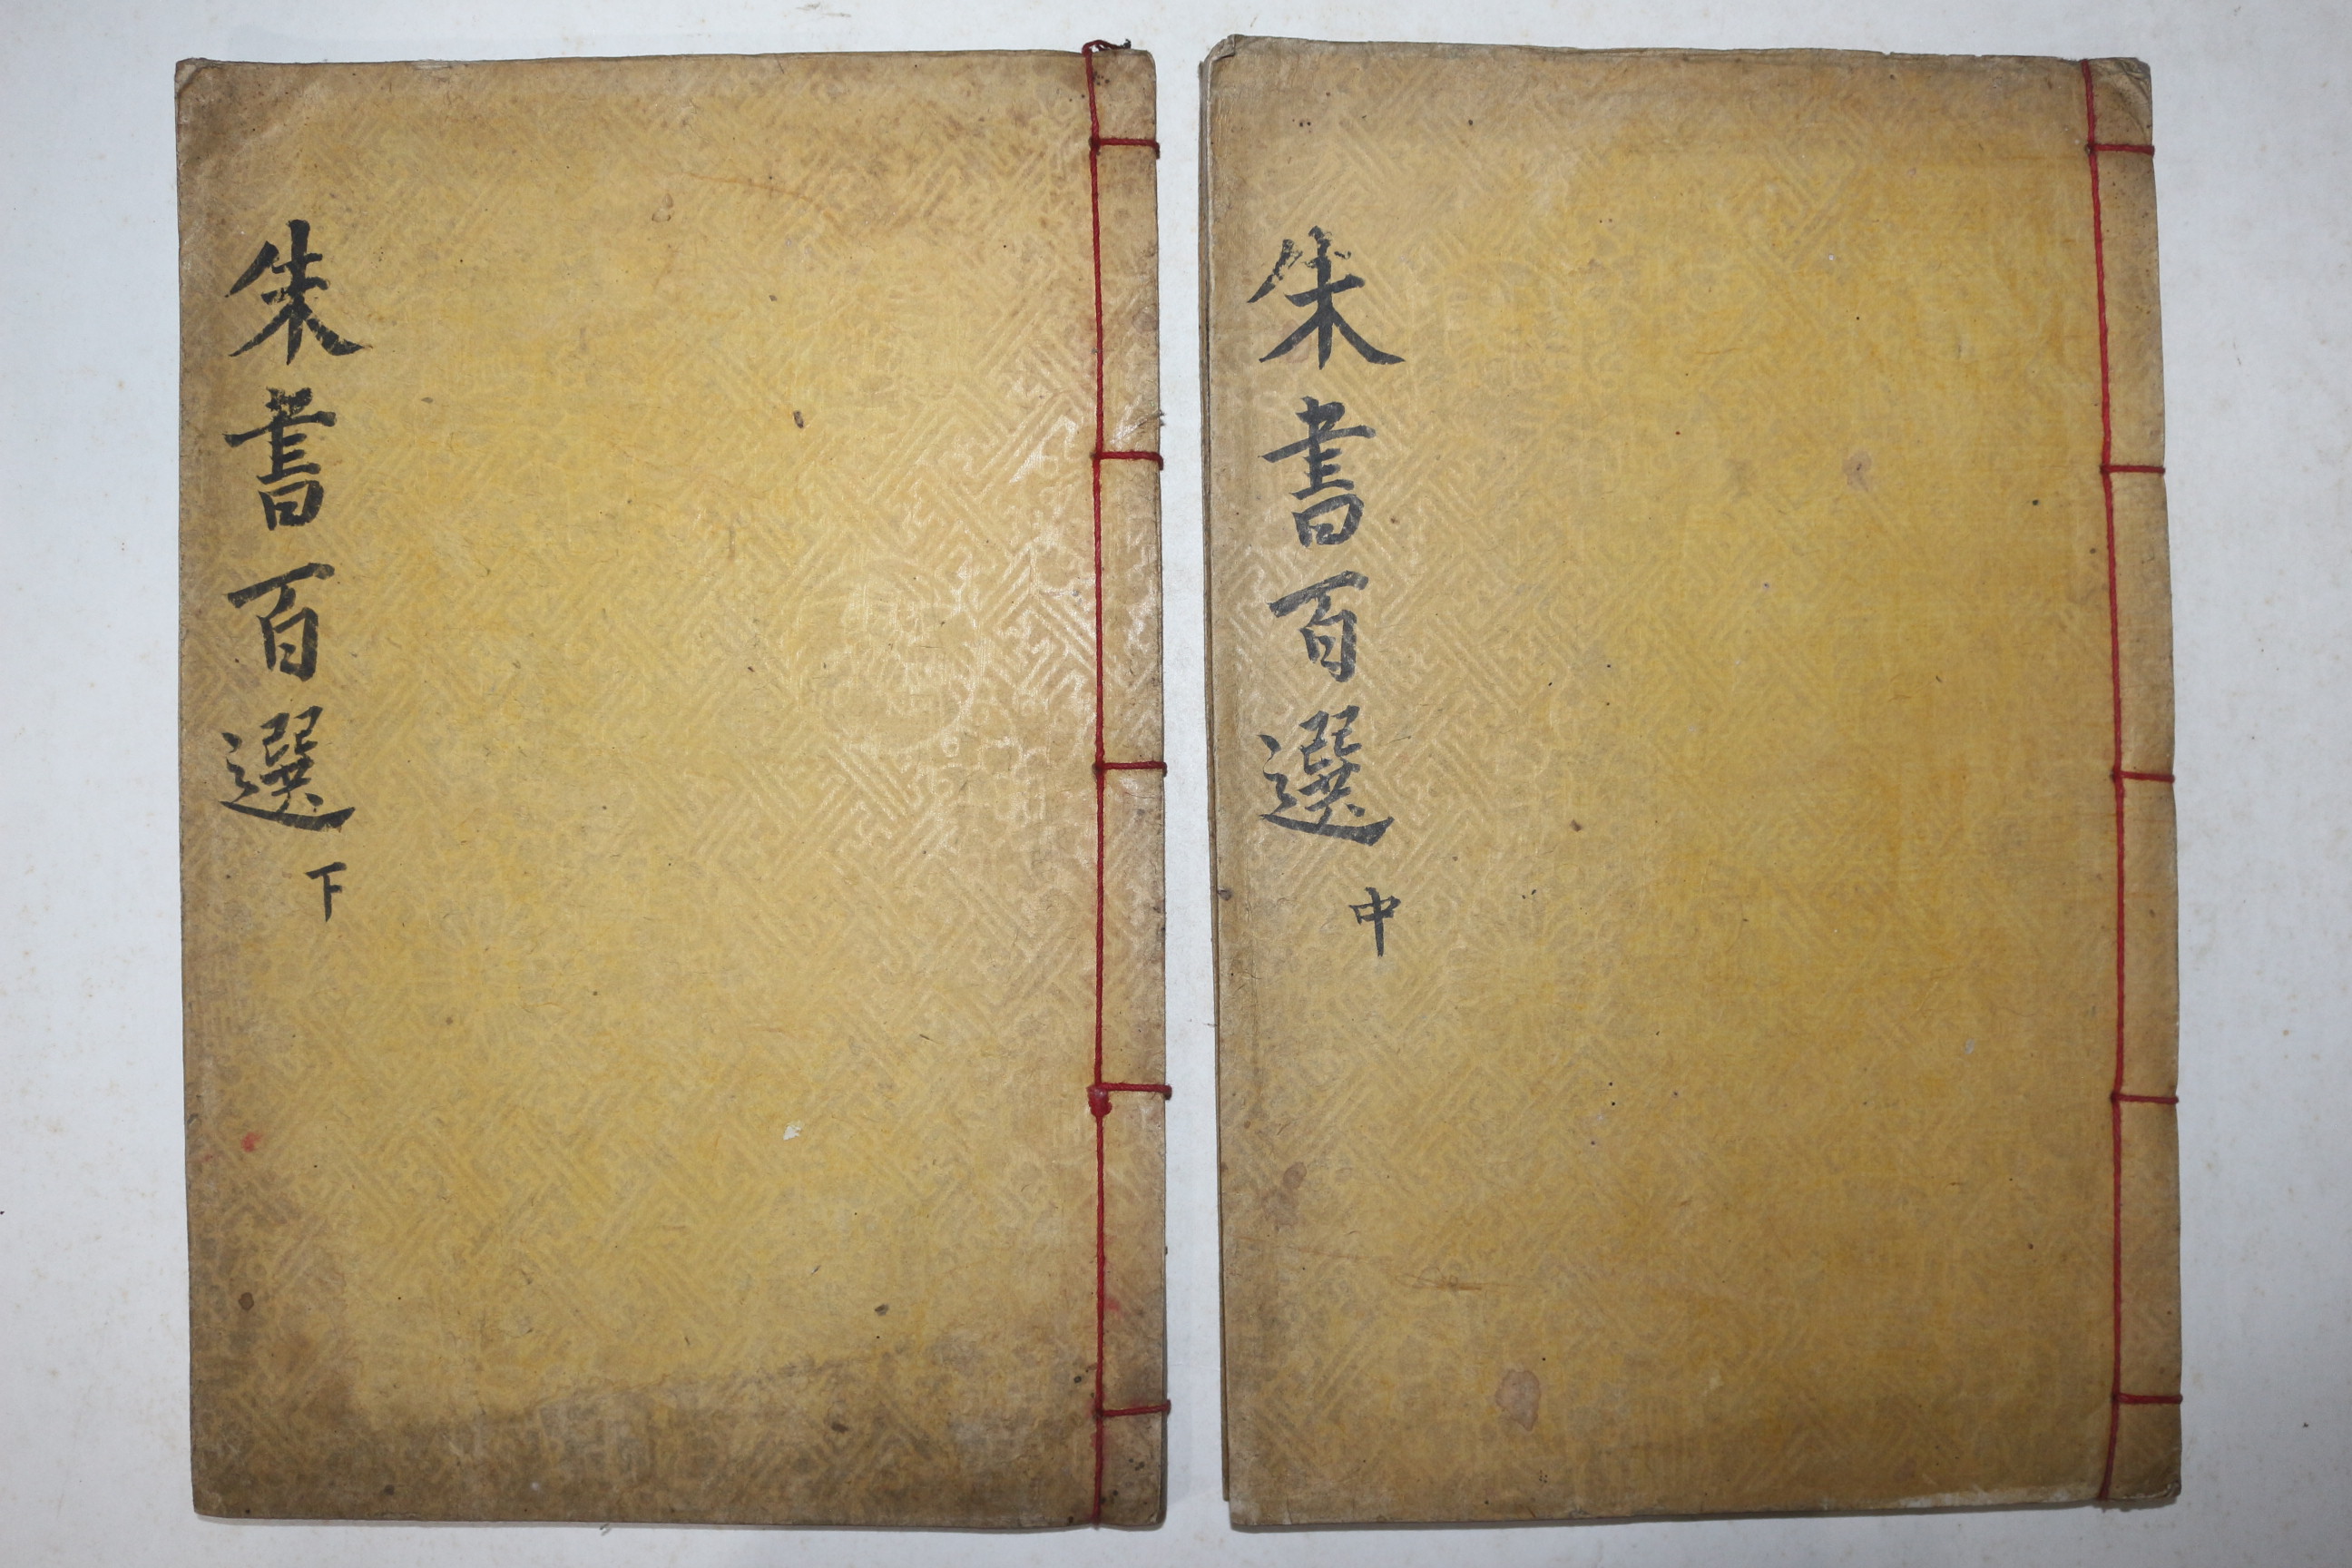 朱書百選 中
朱書百選 下